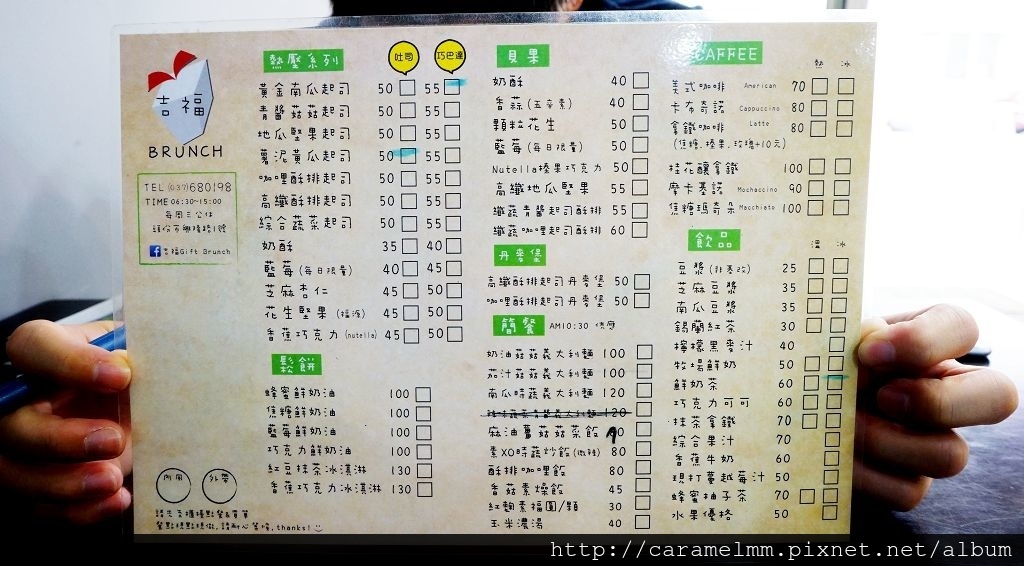 吉福
BRUNCH
TEL (037)680198
TIME 06:30~15:00
每周三公休
頭份市興隆路1號
吉福Gift Brunch
內用 外帶
thanks!
熱壓系列 吐司 巧巴達
黃金南瓜起司 50 55
青醬菇菇起司 50 55
地瓜堅果起司 50 55
薯泥黃瓜起司 50 55
咖哩酥排起司 50 55
高纖酥排起司 50 55
綜合蔬菜起司 50 55
奶酥 35 40
藍莓(每日限量) 40 45
芝麻杏仁 45 50
花生堅果(福源) 45 50
香蕉巧克力(nutella) 45 50
鬆餅
蜂蜜鮮奶油 100
焦糖鮮奶油 100
藍莓鮮奶油 100
巧克力鮮奶油 100
紅豆抹茶冰淇淋 130
香蕉巧克力冰淇淋 130
貝果
奶酥 40
香蒜(五辛素) 40
顆粒花生 50
藍莓(每日限量) 50
Nutella榛果巧克力 50
高纖地瓜堅果 55
纖蔬青醬起司酥排 55
纖蔬咖哩起司酥排 60
丹麥堡
高纖酥排起司丹麥堡 50
咖哩酥排起司丹麥堡 50
簡餐 AM10:30 供應
奶油菇菇義大利麵 100
茄汁菇菇義大利麵 100
南瓜時蔬義大利麵 120
義大利麵 120
麻油蕈菇菇菜飯
素XO時蔬炒飯(微辣) 80
酥排咖哩飯 80
香菇素燥飯 45
紅麴素福圓/顆 30
玉米濃湯 40
CAFFEE
熱 冰
美式咖啡 American 70
卡布奇諾 Cappuccino 80
拿鐵咖啡 Latte 80
(焦糖.榛果.玫瑰+10元)
桂花釀拿鐵 100
摩卡基諾 Mochaccino 90
焦糖瑪奇朵 Macchiato 100
飲品
溫 冰
豆漿(非基改) 25
芝麻豆漿 35
南瓜豆漿 35
錫蘭紅茶 30
檸檬黑麥汁 40
牧場鮮奶 50
鮮奶茶 60
巧克力可可 60
抹茶拿鐵 70
綜合果汁 70
香蕉牛奶 60
現打蔓越莓汁 50
蜂蜜柚子茶 70
水果優格 50
http://caramelmm.pixnet.net/album